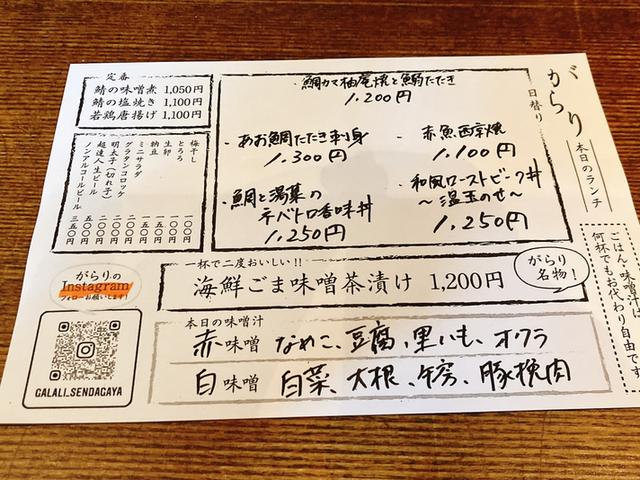 がらり
本日のランチ
日替り
鯛カマ柚庵焼と鯵たたき
1.200円
あお鯛たたき刺身
1.300円
赤魚西京焼
1.100円
鯛と湯葉の
ネバトロ香味丼
1.250円
和風ローストビーフ丼
〜温玉のせ〜
1.250円
定番
鯖の味噌煮 1,050円
鯖の塩焼き 1,100円
若鶏唐揚げ 1,100円
梅干し 一〇〇円
とろろ
生卵
納豆
ミニサラダ
グラタンコロッケ
明太子(切れ子)
超達人生ビール
ノンアルコールビール 三五〇円
ごはん・味噌汁は
何杯でもお代わり自由です
一杯で二度おいしい!!
海鮮ごま味噌茶漬け 1,200円
がらり
名物!
本日の味噌汁
赤味噌 なめこ、豆腐、里いも、オクラ
白味噌 白菜、大根、牛房、豚挽肉
がらりの
Instagram
フォローお願いします!
GALALI_SENDAGAYA